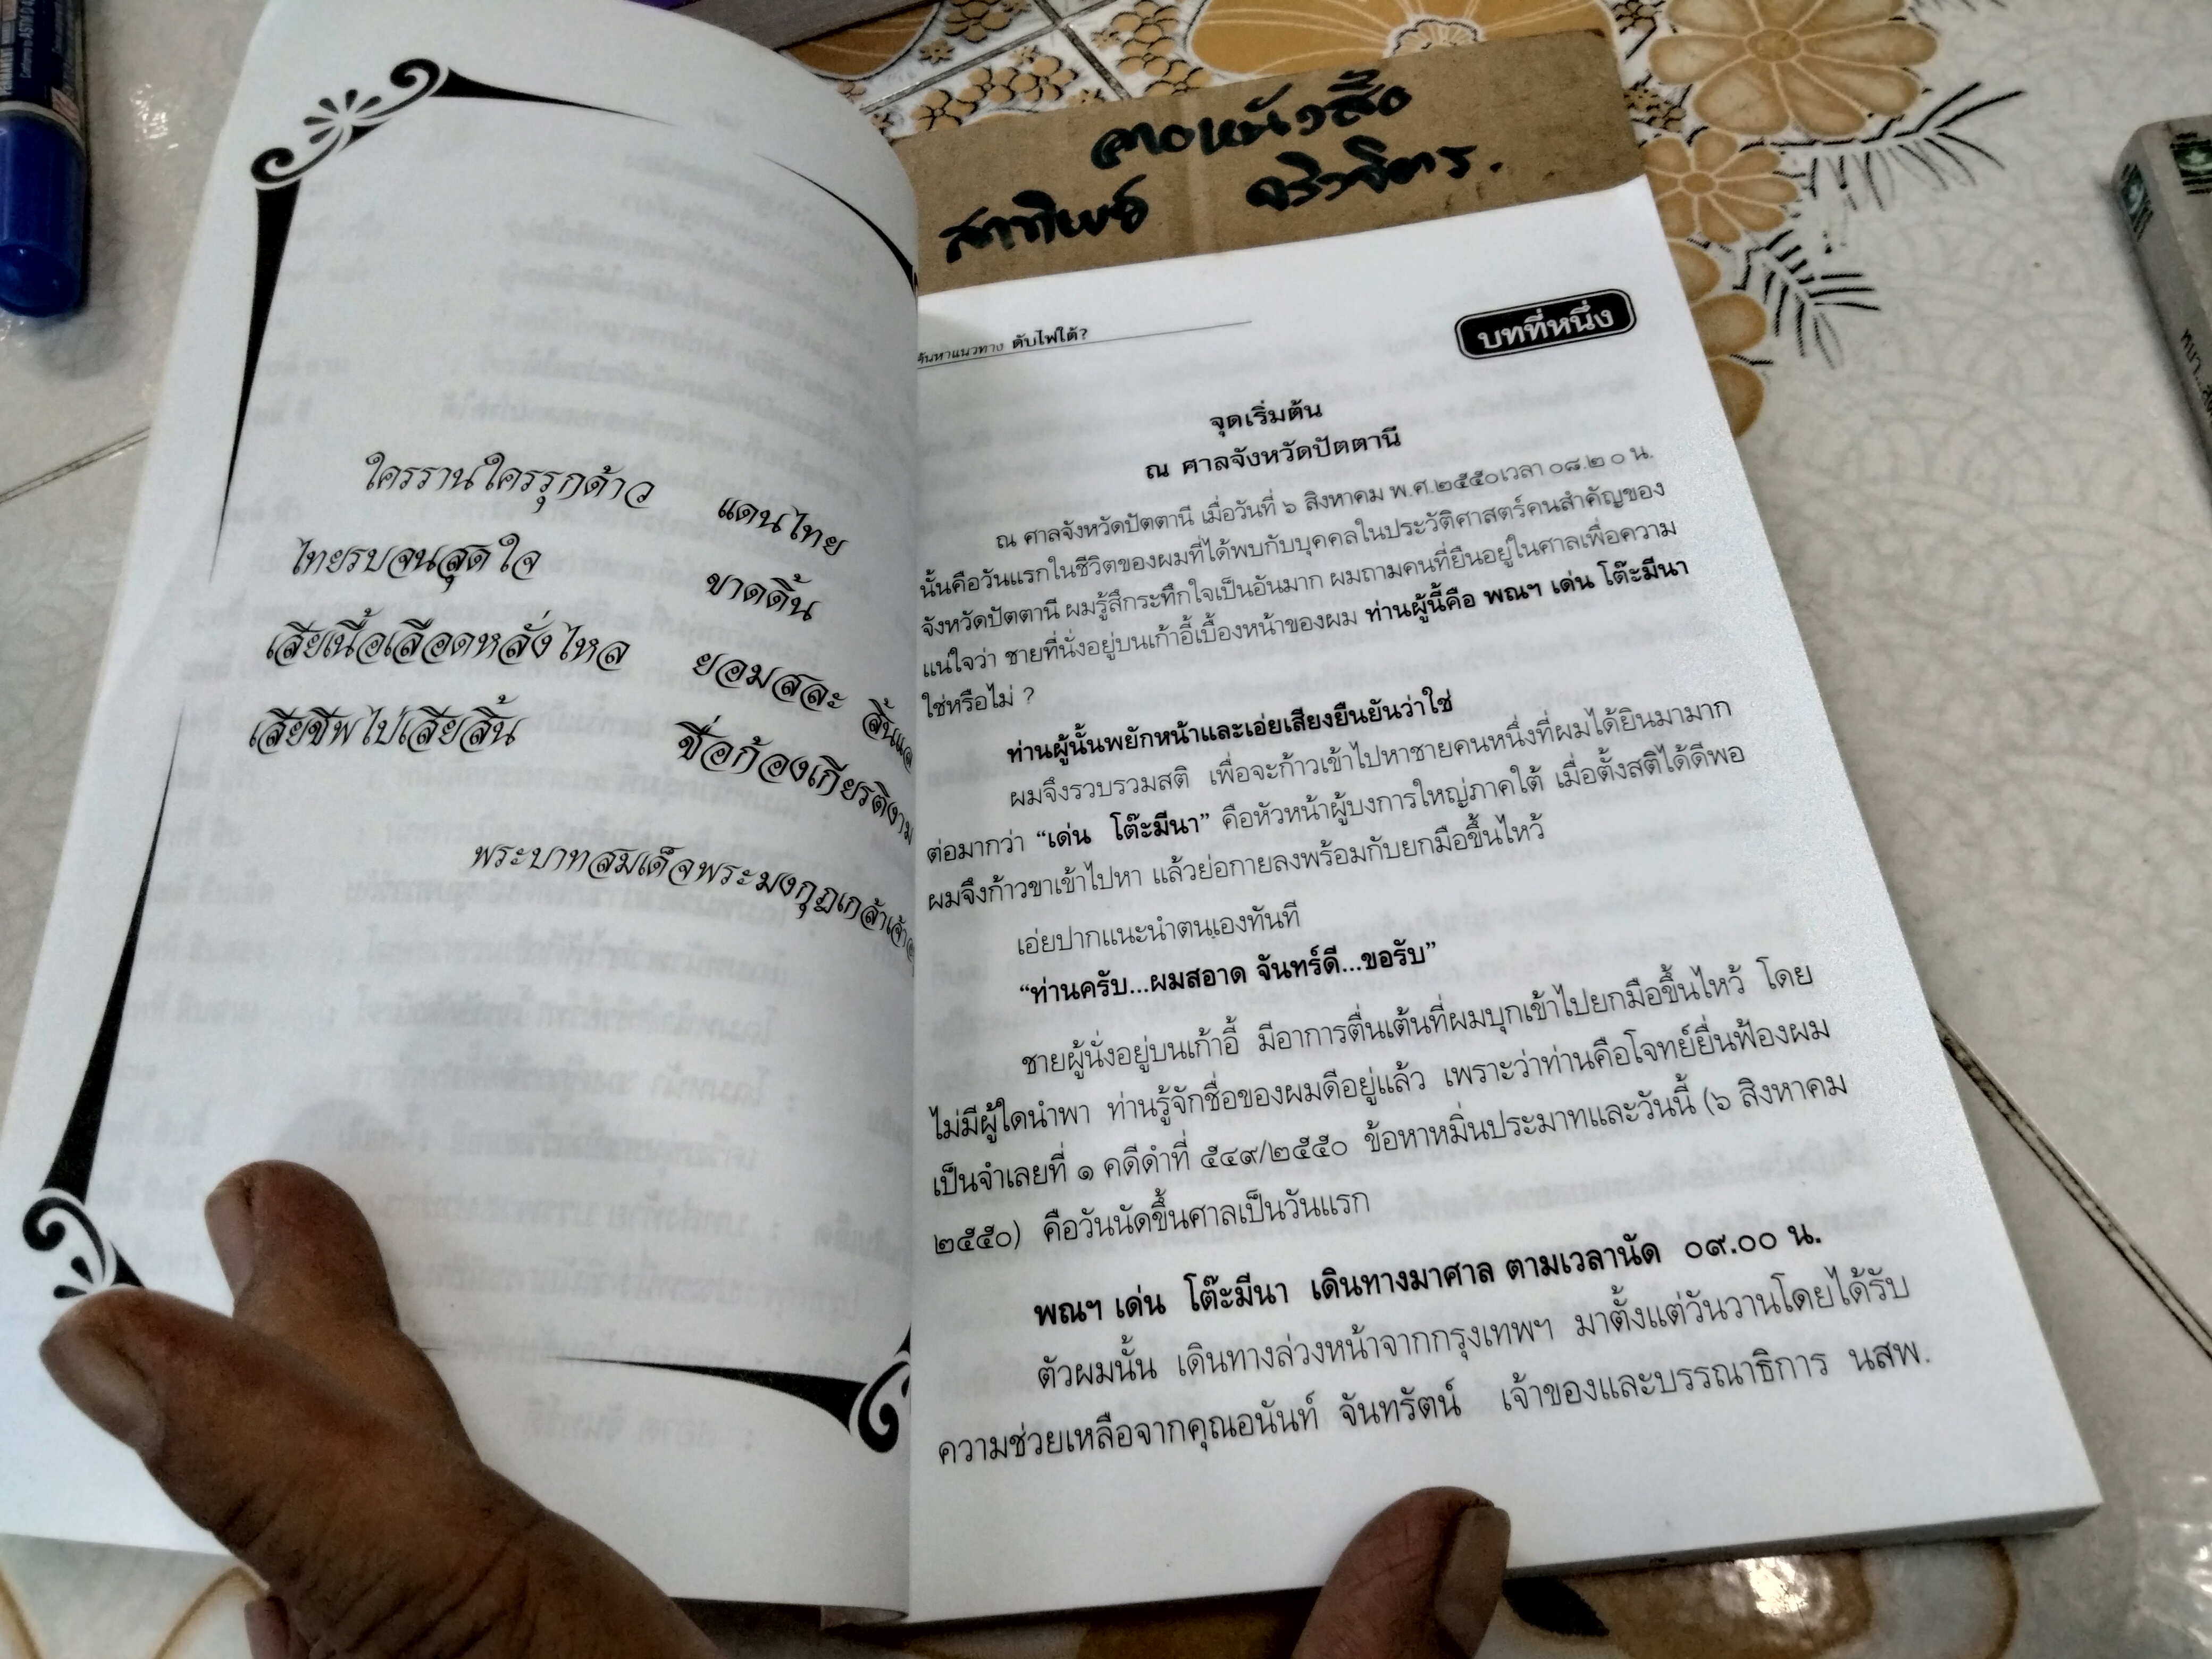 ใครรานใครรุกด้าว แดนไทย
ไทยรบจนสุดใจ ขาดดิ้น
เสียเนื้อเลือดหลั่งไหล ยอมสละ สิ้นแล
เสียชีพไป่เสียสิ้น ชื่อก้องเกียรติงาม
พระบาทสมเด็จพระมงกุฎเกล้าเจ้า
ค้นหาแนวทาง ดับไฟใต้?
บทที่หนึ่ง
จุดเริ่มต้น
ณ ศาลจังหวัดปัตตานี
ณ ศาลจังหวัดปัตตานี เมื่อวันที่ ๖ สิงหาคม พ.ศ.๒๕๕๐เวลา ๐๘.๒๐ น.
นั้นคือวันแรกในชีวิตของผมที่ได้พบกับบุคคลในประวัติศาสตร์คนสำคัญของ
จังหวัดปัตตานี ผมรู้สึกระทึกใจเป็นอันมาก ผมถามคนที่ยืนอยู่ในศาลเพื่อความ
แน่ใจว่า ชายที่นั่งอยู่บนเก้าอี้เบื้องหน้าของผม ท่านผู้นี้คือ พณฯ เด่น โต๊ะมีนา
ใช่หรือไม่ ?
ท่านผู้นั้นพยักหน้าและเอ่ยเสียงยืนยันว่าใช่
ผมจึงรวบรวมสติ เพื่อจะก้าวเข้าไปหาชายคนหนึ่งที่ผมได้ยินมามาก
ต่อมากว่า “เด่น โต๊ะมีนา” คือหัวหน้าผู้บงการใหญ่ภาคใต้ เมื่อตั้งสติได้ดีพอ
ผมจึงก้าวขาเข้าไปหา แล้วย่อกายลงพร้อมกับยกมือขึ้นไหว้
เอ่ยปากแนะนำตนเองทันที
“ท่านครับ...ผมสอาด จันทร์ดี...ขอรับ”
ชายผู้นั่งอยู่บนเก้าอี้ มีอาการตื่นเต้นที่ผมบุกเข้าไปยกมือขึ้นไหว้ โดย
ไม่มีผู้ใดนำพา ท่านรู้จักชื่อของผมดีอยู่แล้ว เพราะว่าท่านคือโจทย์ยื่นฟ้องผม
เป็นจำเลยที่ ๑ คดีดำที่ ๕๔๙/๒๕๕๐ ข้อหาหมิ่นประมาทและวันนี้ (๖ สิงหาคม
๒๕๕๐) คือวันนัดขึ้นศาลเป็นวันแรก
พณฯ เด่น โต๊ะมีนา เดินทางมาศาล ตามเวลานัด ๐๙.๐๐ น.
ตัวผมนั้น เดินทางล่วงหน้าจากกรุงเทพฯ มาตั้งแต่วันวานโดยได้รับ
ความช่วยเหลือจากคุณอนันท์ จันทรัตน์ เจ้าของและบรรณาธิการ นสพ.